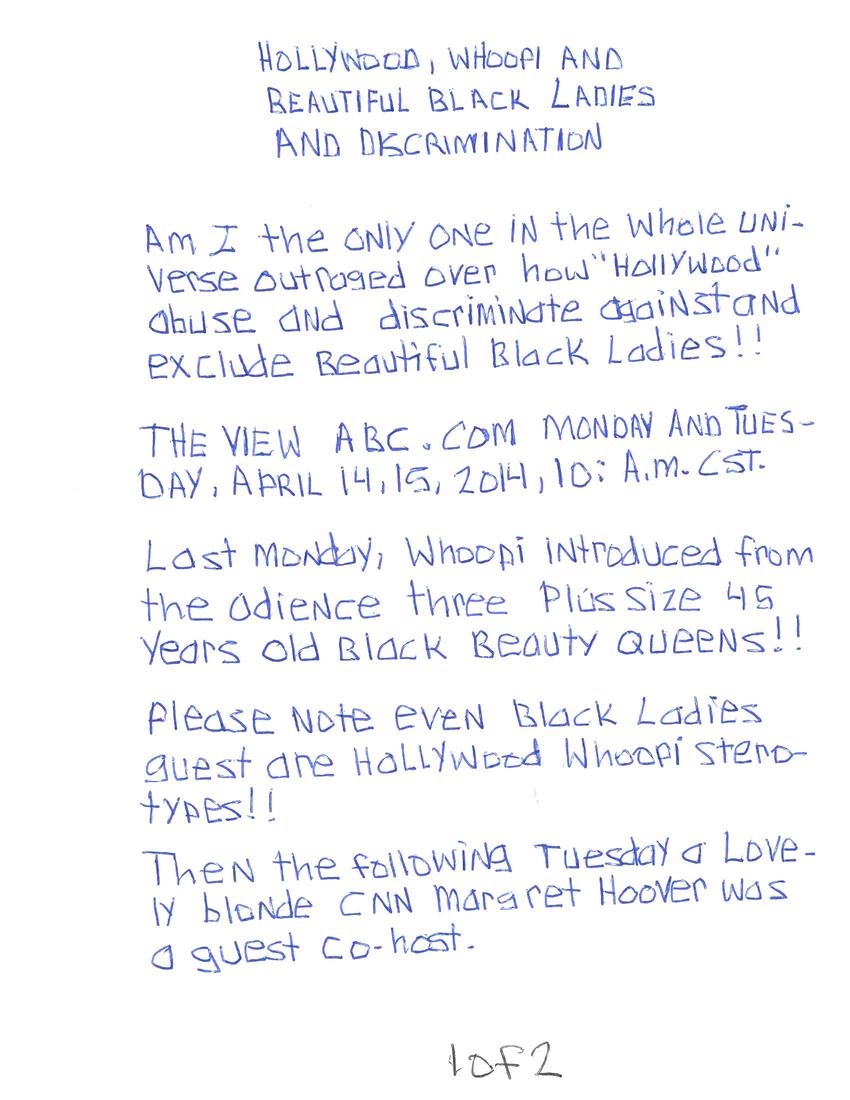 HOLLYWOOD, WHOOPI AND
BEAUTIFUL BLACK LADIES
AND DISCRIMINATION
Am I the ONLY ONE IN the Whole UNI-
Verse outraged over how "Hollywood"
abuse and discriminate against and
exclude Beautiful Black Ladies!!
THE VIEW ABC.COM MONDAY AND TUES-
DAY, APRIL 14,15, 2014, 10: A.M. CST.
Last Monday, Whoopi introduced from
the odience three Plus Size 45
Years old Black Beauty Queens!!
Please Note even Black Ladies
guest are Hollywood Whoopi stero-
types!!
Then the following Tuesday a Love-
ly blonde CNN Margret Hoover was
a guest co-host.
1 of 2